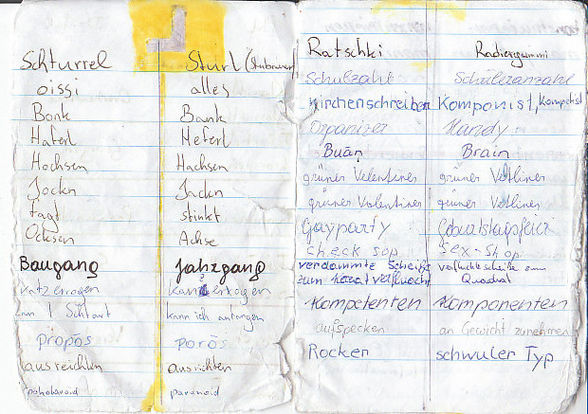 Schturrel Sturl (Stubaurer)
oissi alles
Bonk Bank
Haferl Heferl
Hochsen Hachsen
Jockn Jackn
fagt stinkt
Ochsen Achse
Baugang Jahrgang
vatzerrogen verzogen
I kann ich anfangen
Propós Porös
ausreichten ausrichten
paranoid
Ratschki Radiergummi
Schulzahl Schüleranzahl
Kirchenschreiber Komponist, Komponist
Organizer Handy
Buan Brain
grüner Velentiner grüner Veltliner
grüner Valentiner grüner Veltliner
Gayparty
Check sop Sex-Shop
verdammte Scheiße verfluchte Scheiße zum
zum Quadrat
Kompetenten Komponenten
aufspecken an Gewicht zunehmen
Rocker schwuler Typ